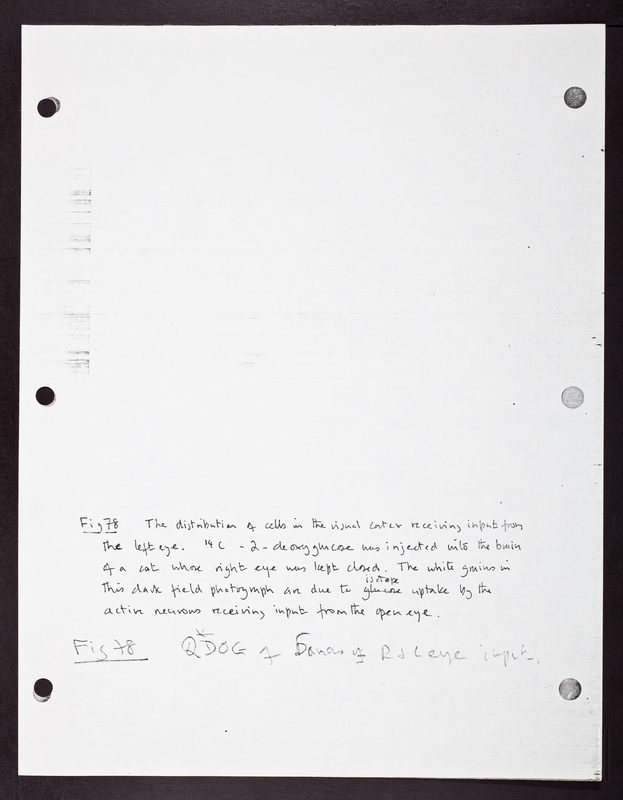 Fig 78 The distribution of cells in the visual cortex receiving input from
the left eye. ¹⁴C - 2-deoxyglucose was injected into the brain
of a cat whose right eye was kept closed. The white grains in
isotope
this dark field photograph are due to glucose uptake by the
active neurons receiving input from the open eye.
Fig 78 2DOG of bands of R & L eye input.